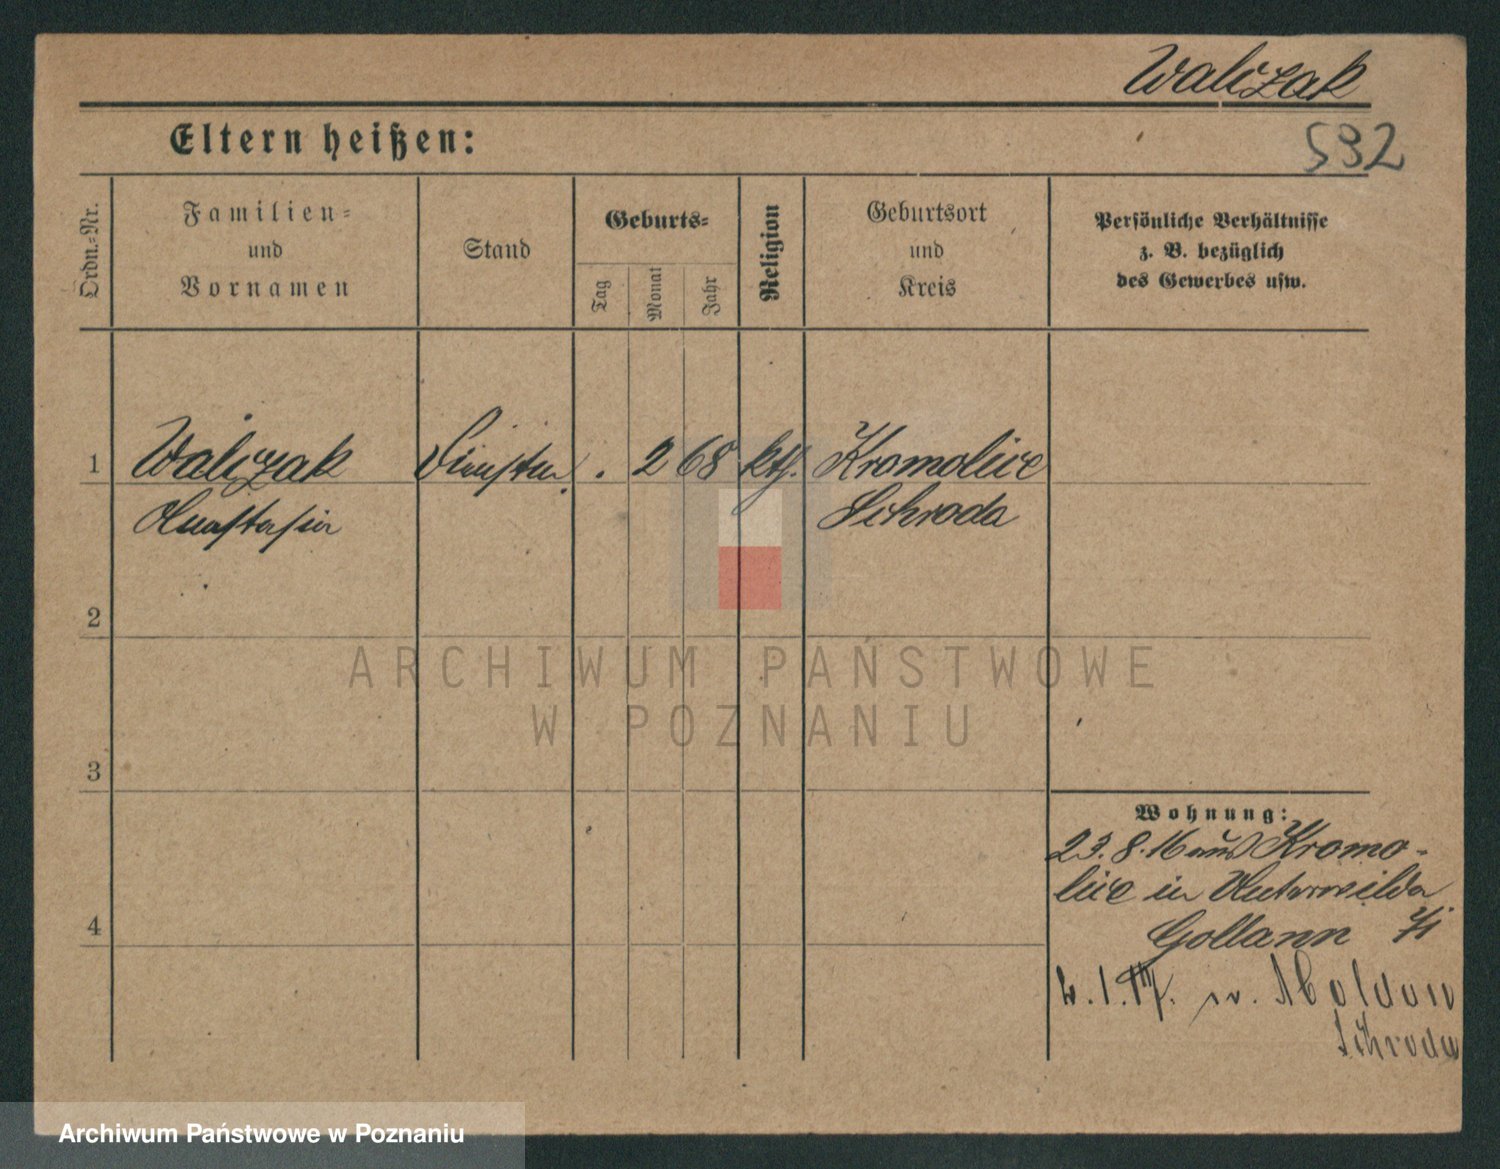 Walczak
Eltern heißen:
532
Ordn.-Nr.
Familien-
und
Vornamen
Stand
Geburts-
Tag
Monat
Jahr
Religion
Geburtsort
und
Kreis
Persönliche Verhältnisse
z. B. bezüglich
des Gewerbes usw.
1
Walczak
. 2 68 kth. Kromolice
Anastasia
Schroda
2
ARCHIWUM PAŃSTWOWE
W POZNANIU
3
Wohnung:
23.8.16 aus Kromo-
lice in Unterwilda
4
Gollann
2.1.17.
Schroda
Archiwum Państwowe w Poznaniu